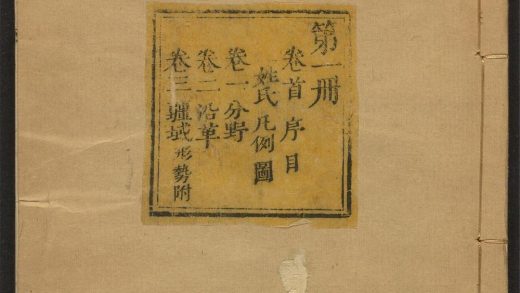 第一册
卷首 序 目
姓氏 凡例 圖
卷一 分野
卷二 沿革
卷三 疆域 形勢附